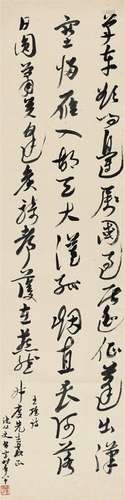 單車欲問邊屬國過居延征蓬出漢
塞歸雁入胡天大漠孤煙直長河落
日圓蕭關逢候騎都護在燕然
王維詩
先生